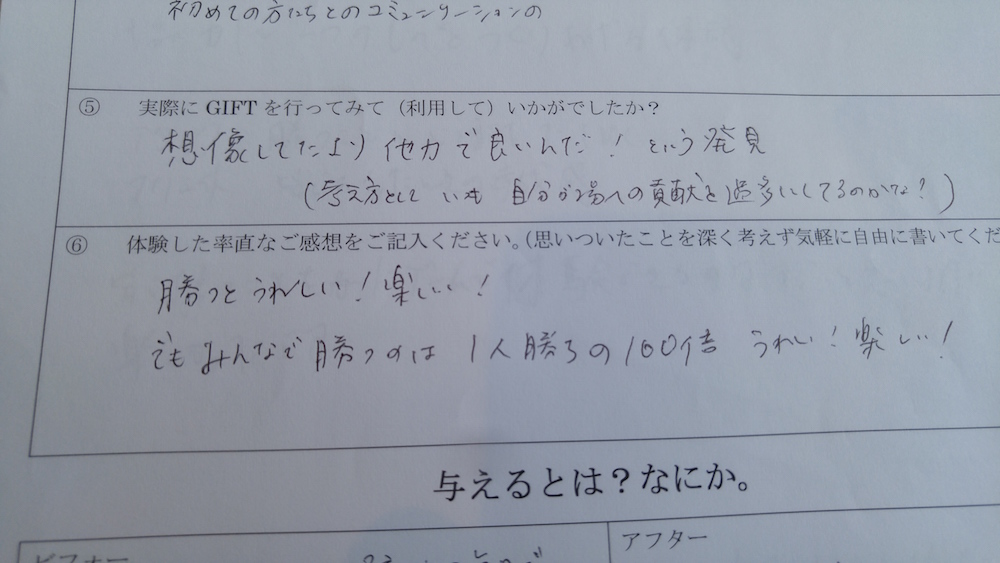 初めての方たちとのコミュニケーションの
⑤ 実際に GIFT を行ってみて（利用して）いかがでしたか？
想像してたより他力で良いんだ！という発見
（考え方として いつも 自分が場への貢献を過多いしてるのかな？）
⑥ 体験した率直なご感想をご記入ください。（思いついたことを深く考えず気軽に自由に書いてくだ
勝つとうれしい！楽しい！
でもみんなで勝つのは1人勝ちの100倍 うれしい！楽しい！
与えるとは？なにか。
ビフォー
アフター